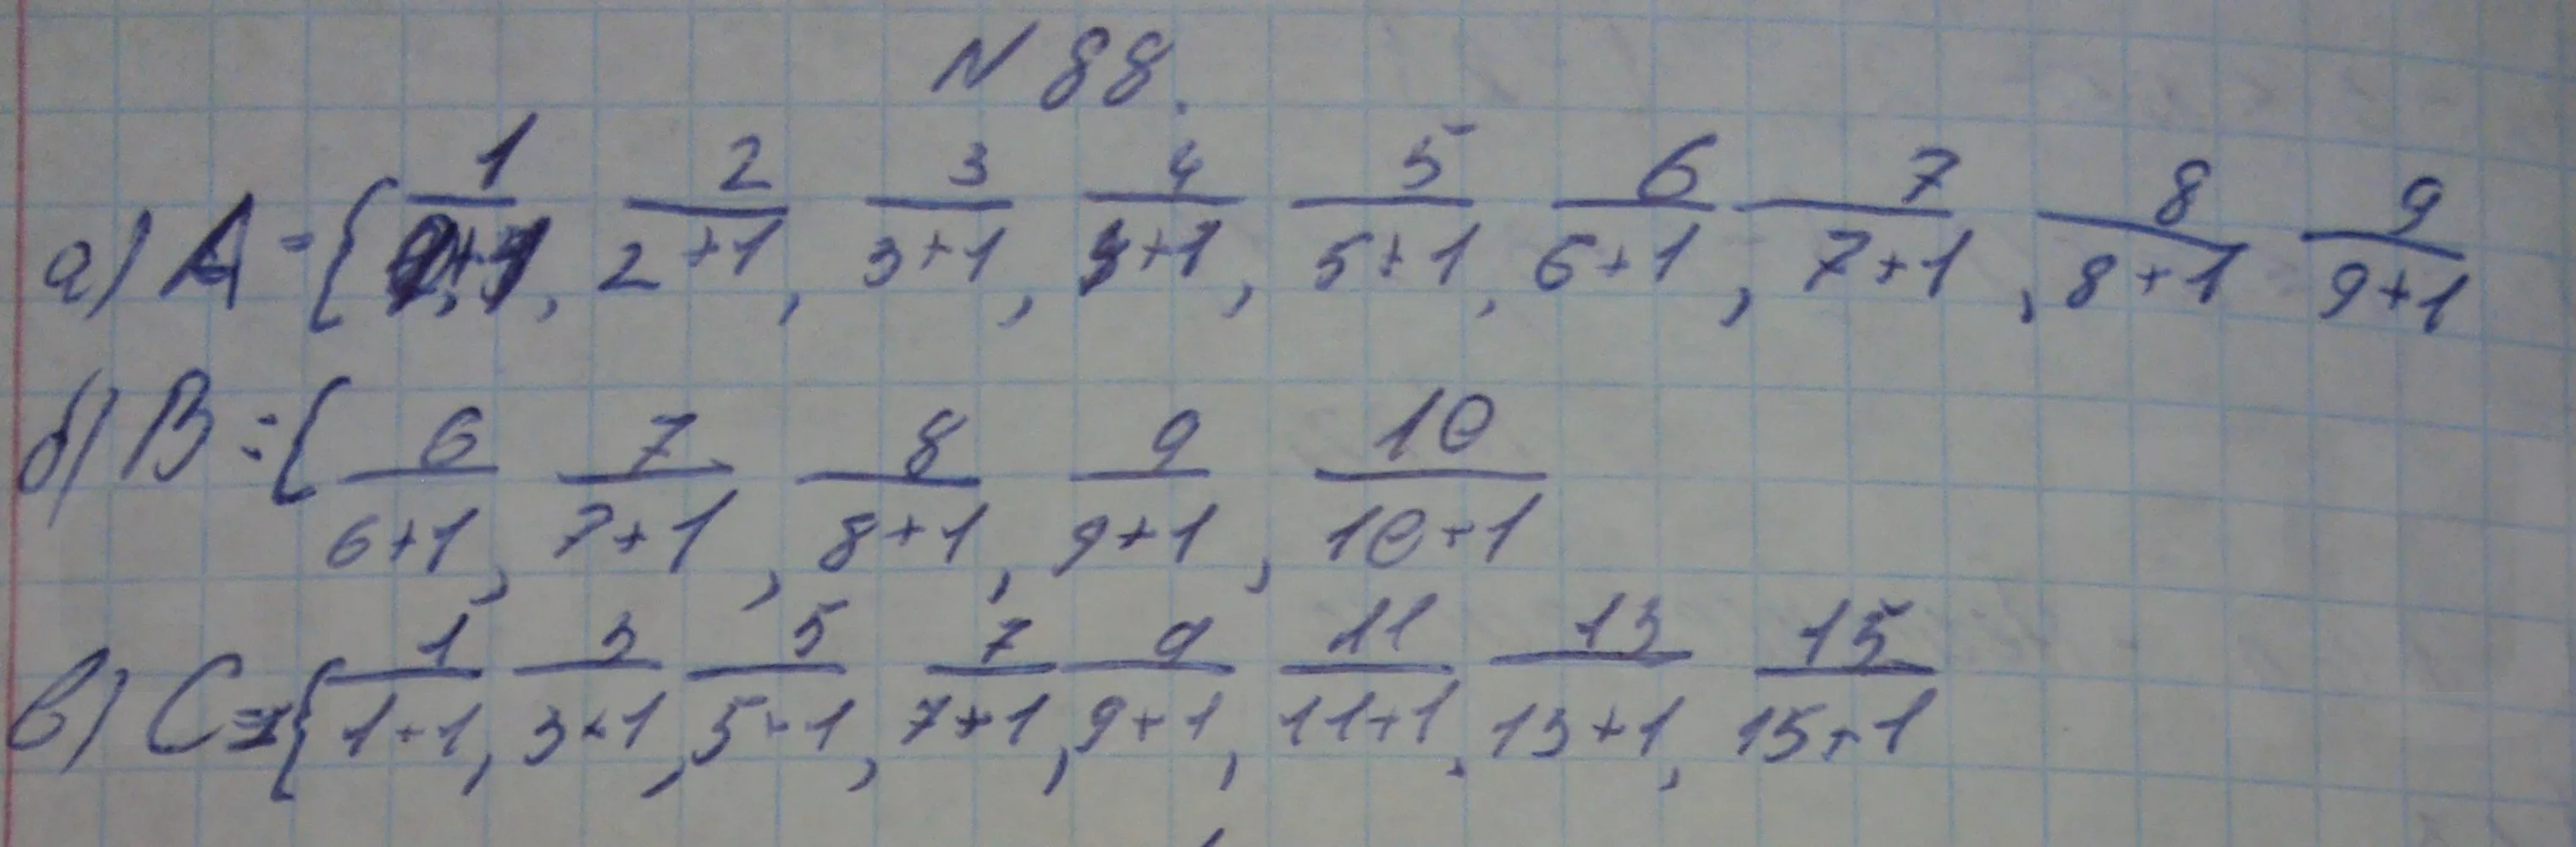 N 88.
а) A = { 1/1+1, 2/2+1, 3/3+1, 4/4+1, 5/5+1, 6/6+1, 7/7+1, 8/8+1 9/9+1
б) B = { 6/6+1, 7/7+1, 8/8+1, 9/9+1, 10/10+1
в) C = { 1/1+1, 3/3+1, 5/5+1, 7/7+1, 9/9+1, 11/11+1, 13/13+1, 15/15+1